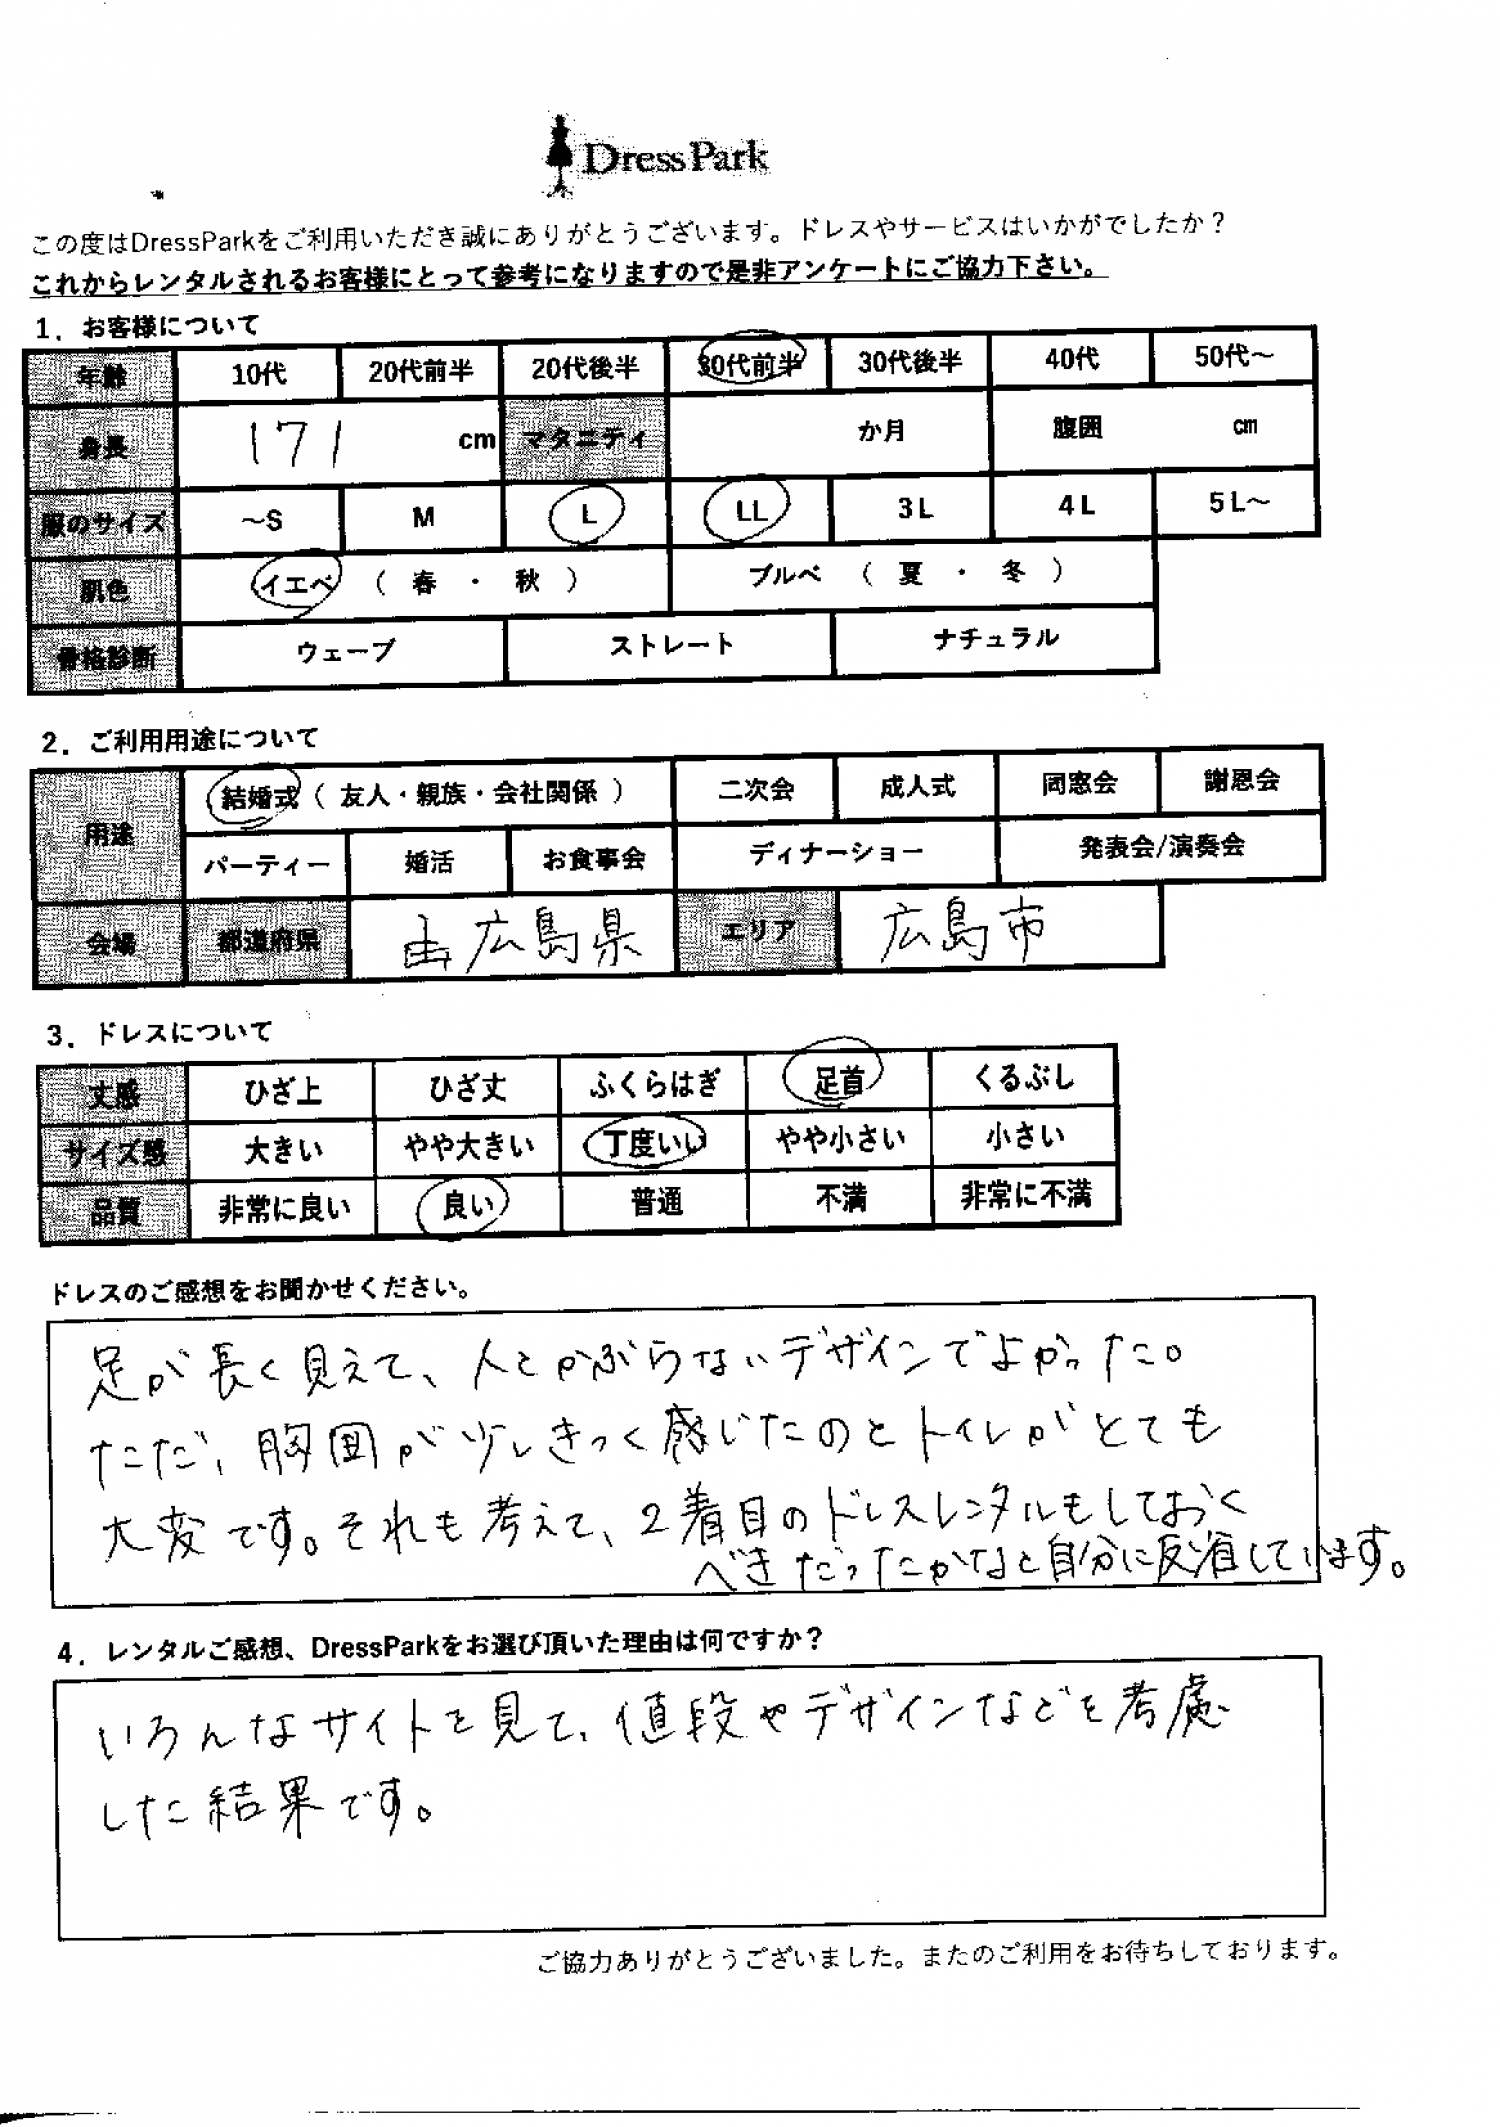 DressPark
この度はDressParkをご利用いただき誠にありがとうございます。ドレスやサービスはいかがでしたか？
これからレンタルされるお客様にとって参考になりますので是非アンケートにご協力下さい。
1．お客様について
年齢 10代 20代前半 20代後半 30代前半 30代後半 40代 50代～
身長 171 cm マタニティ か月 腹囲 cm
服のサイズ ～S M L LL 3L 4L 5L～
肌色 イエベ （ 春 ・ 秋 ） ブルベ （ 夏 ・ 冬 ）
骨格診断 ウェーブ ストレート ナチュラル
2．ご利用用途について
用途 結婚式（ 友人・親族・会社関係 ） 二次会 成人式 同窓会 謝恩会
パーティー 婚活 お食事会 ディナーショー 発表会/演奏会
会場 都道府県 広島県 エリア 広島市
3．ドレスについて
丈感 ひざ上 ひざ丈 ふくらはぎ 足首 くるぶし
サイズ感 大きい やや大きい 丁度いい やや小さい 小さい
品質 非常に良い 良い 普通 不満 非常に不満
ドレスのご感想をお聞かせください。
足が長く見えて、人とかぶらないデザインでよかった。
ただ、胸囲が少しきつく感じたのとトイレがとても
大変です。それも考えて、2着目のドレスレンタルもしておく
べきだったかなと自分に反省しています。
4．レンタルご感想、DressParkをお選び頂いた理由は何ですか？
いろんなサイトを見て、値段やデザインなどを考慮
した結果です。
ご協力ありがとうございました。またのご利用をお待ちしております。